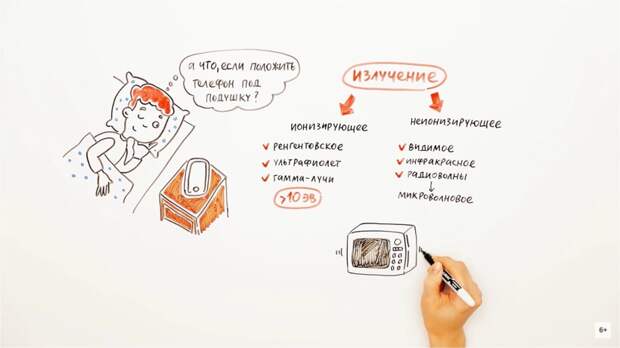 А ЧТО, ЕСЛИ ПОЛОЖИТЬ
ТЕЛЕФОН ПОД
ПОДУШКУ?
ИЗЛУЧЕНИЕ
ИОНИЗИРУЮЩЕЕ
РЕНГЕНТОВСКОЕ
УЛЬТРАФИОЛЕТ
ГАММА-ЛУЧИ
>10 ЭВ
НЕИОНИЗИРУЮЩЕЕ
ВИДИМОЕ
ИНФРАКРАСНОЕ
РАДИОВОЛНЫ
МИКРОВОЛНОВОЕ
6+